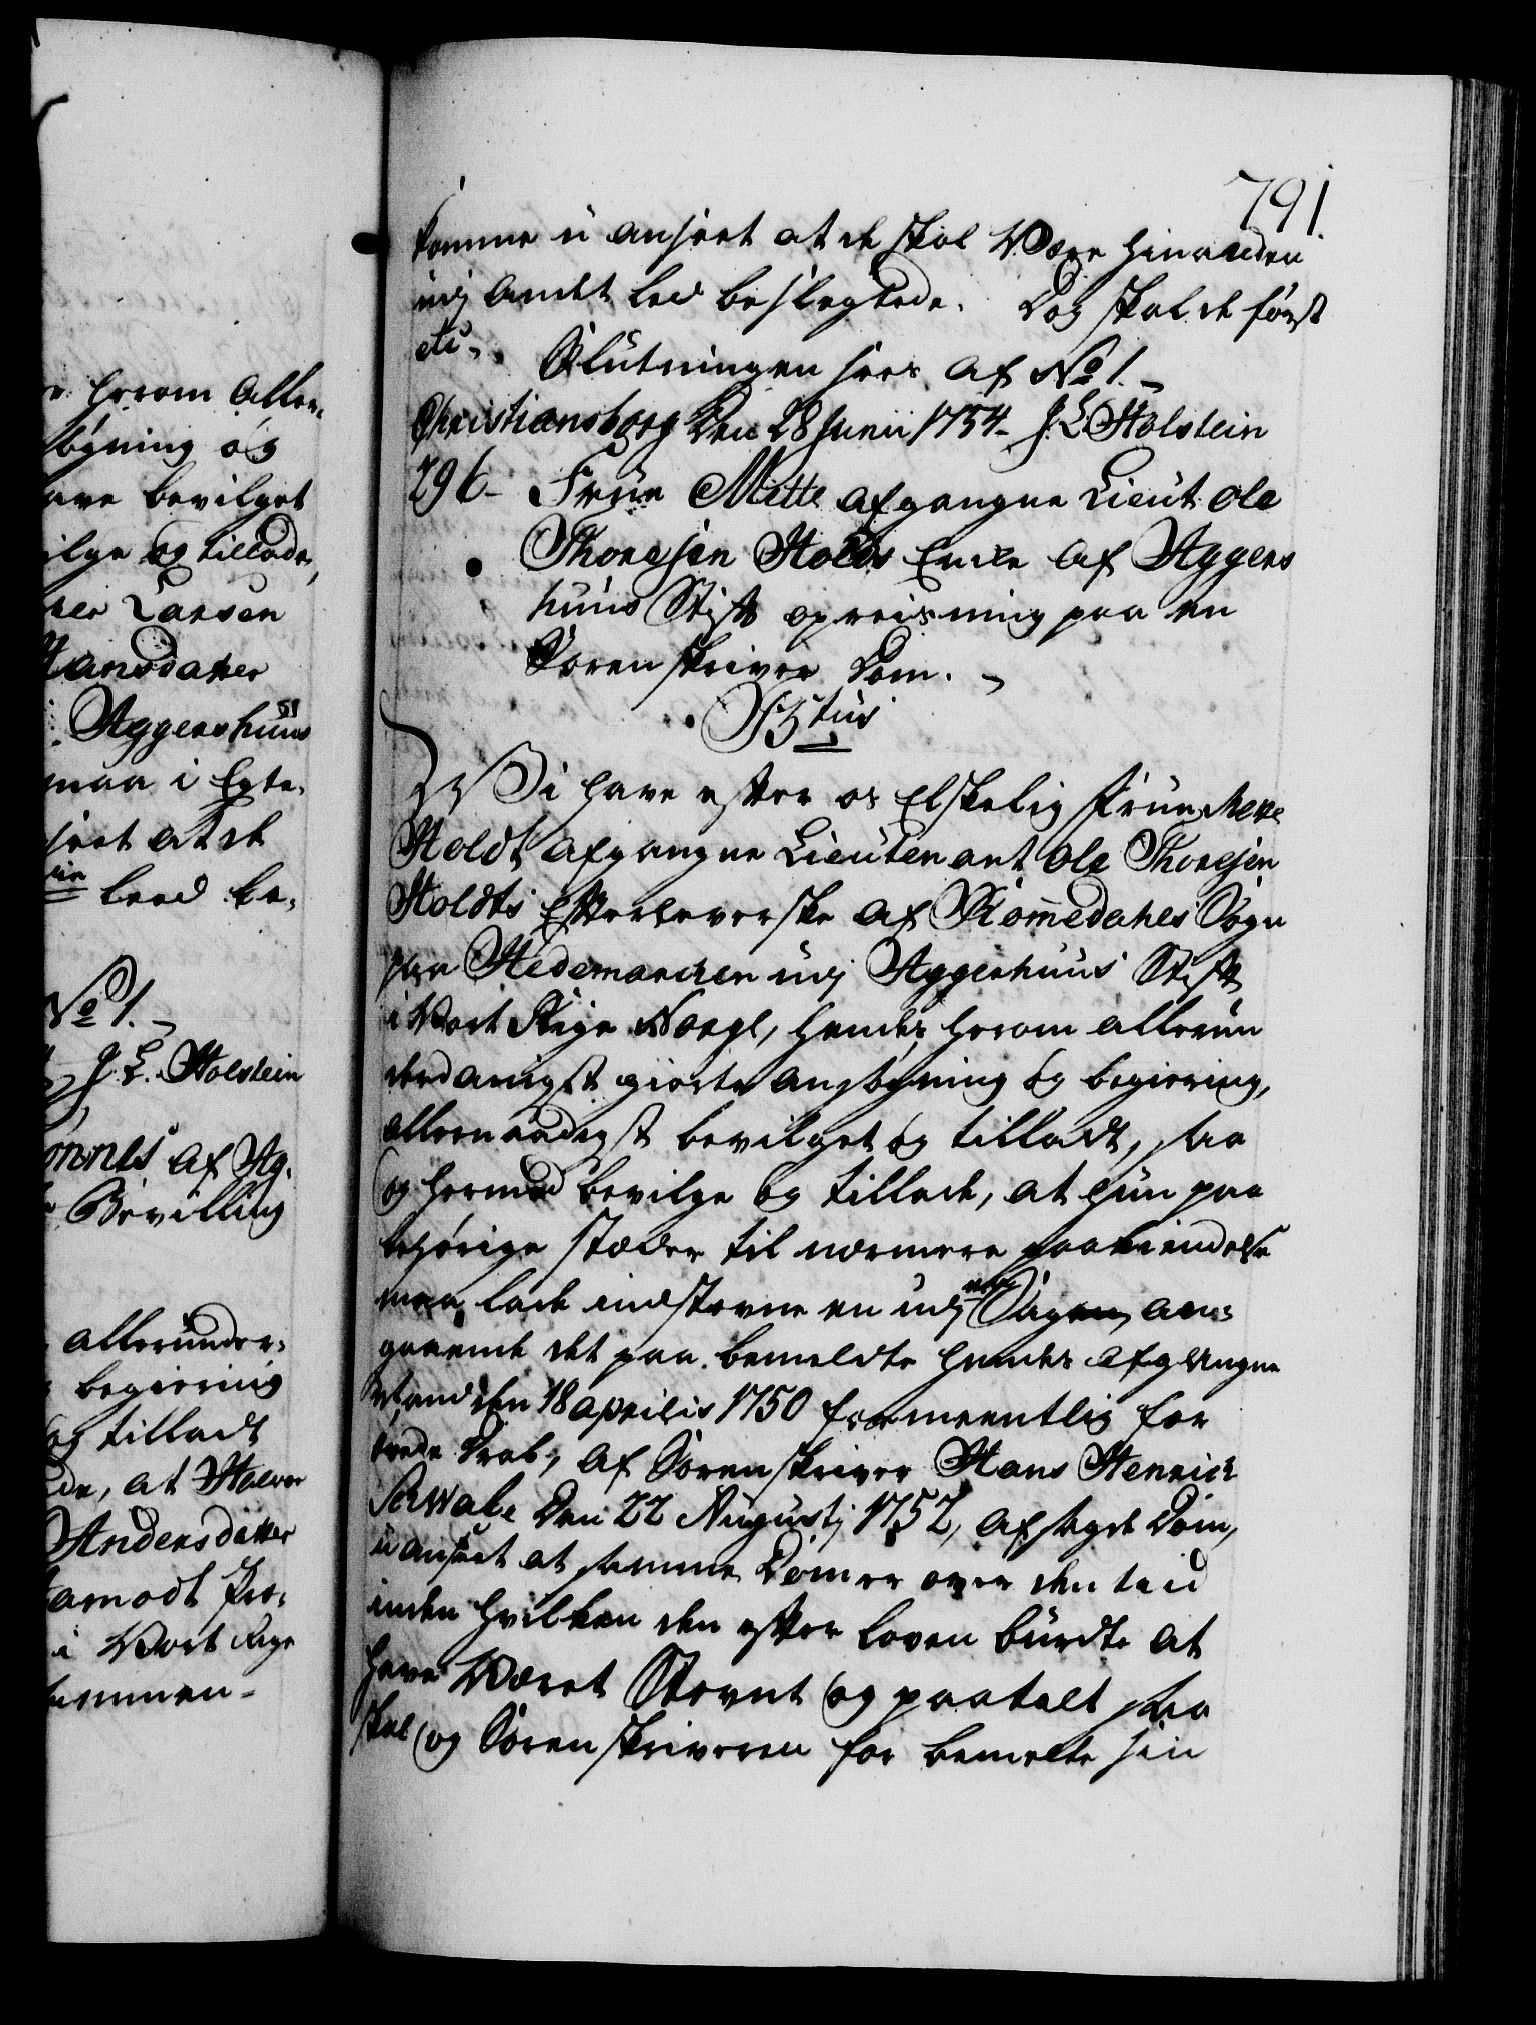 791.
komme u anseet at de skal Være hinanden
udj andet Leed beslegtede. Dog skal de først
etc. Slutningen sees af No 1.
Christiansborg Den 28 Junii 1754. J. L. Holstein
296. Frue Mette afgangne Lieut Ole
Thoresen Holdts Encke af Aggers
huus Stift opreisning paa en
Sorenskriver Dom.
Vi have efter os Elskelig Frue Mette
Holdt afgangne Lieutenant Ole Thoresen
Holdts Efterleverske af Romedahls Sogn
paa Hedemarchen udj Aggerhuus Stift
i Vort Rige Norge, hendes herom allerun
derdanigst giorte ansøgning og begiering,
allernaadigst bevilget og tilladt, saa
og hermed bevilge og tillade, at hun paa
behörige stæder til nærmere paakiendelse
maa lade indstevne en udj en Sagen, an-
gaaende det paa bemeldte hendes afgangne
Mand den 18 Aprilis 1750 formeentlig for
övede Drab, af Sorenskriver Hans Henrich
Schwabe Den 22 Augustj 1752, afsagde Dom,
u anseet at samme Dom er over den tiid
inden hvilken den efter loven burdte at
have Været Stevnt og paatalt saa
skal og Sorenskriveren for bemelte sin
r herom Aller-
søgning og
ave bevilget
ilge og tillade,
Larsen
Hansdatter
Aggershuus
maa i Egte-
seet at de
leed be-
No 1.
J. L. Holstein
af Ag-
Bevilling
allerunder-
begiering
og tilladt
de, at Halvor
Andersdatter
i Vort Rige
sammen-